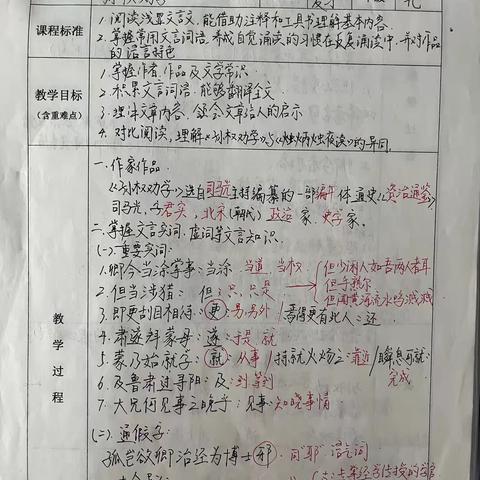 复习
课程标准
1. 阅读浅显文言文,能借助注释和工具书理解基本内容。
2. 掌握常用文言词语,养成自觉诵读的习惯在反复诵读中,并对作品
的语言特色
教学目标
(含重难点)
1. 掌握作者、作品及文学常识
2. 积累文言词语,能够翻译全文
3. 理清文章内容,领会文章给人的启示
4. 对比阅读,理解《孙权劝学》与《炳烛夜读》的异同。
教学过程
一. 作家作品:
《孙权劝学》选自司马光主持编纂的一部编年体通史《资治通鉴》
司马光,字君实,北宋(朝代)政治家、史学家。
二. 掌握文言实词、虚词等文言知识。
(一). 重要实词:
1. 卿今当涂掌事:当涂:当道、当权
2. 但当涉猎:但:只,只是 但少闲人如吾两人者耳
但手熟尔
但闻黄河流水鸣溅溅
3. 即更刮目相待:更:另,另外/晋得更有北人:还
4. 肃遂拜蒙母:遂:于是,就
5. 蒙乃始就学:就:从事/持就火炀之:靠近/瞬息可就:
完成
6. 及鲁肃过寻阳:及:到,等到
7. 大兄何见事之晚乎:见事:知晓事情
(二). 通假字:
孤岂欲卿治经为博士邪:同"耶"语气词